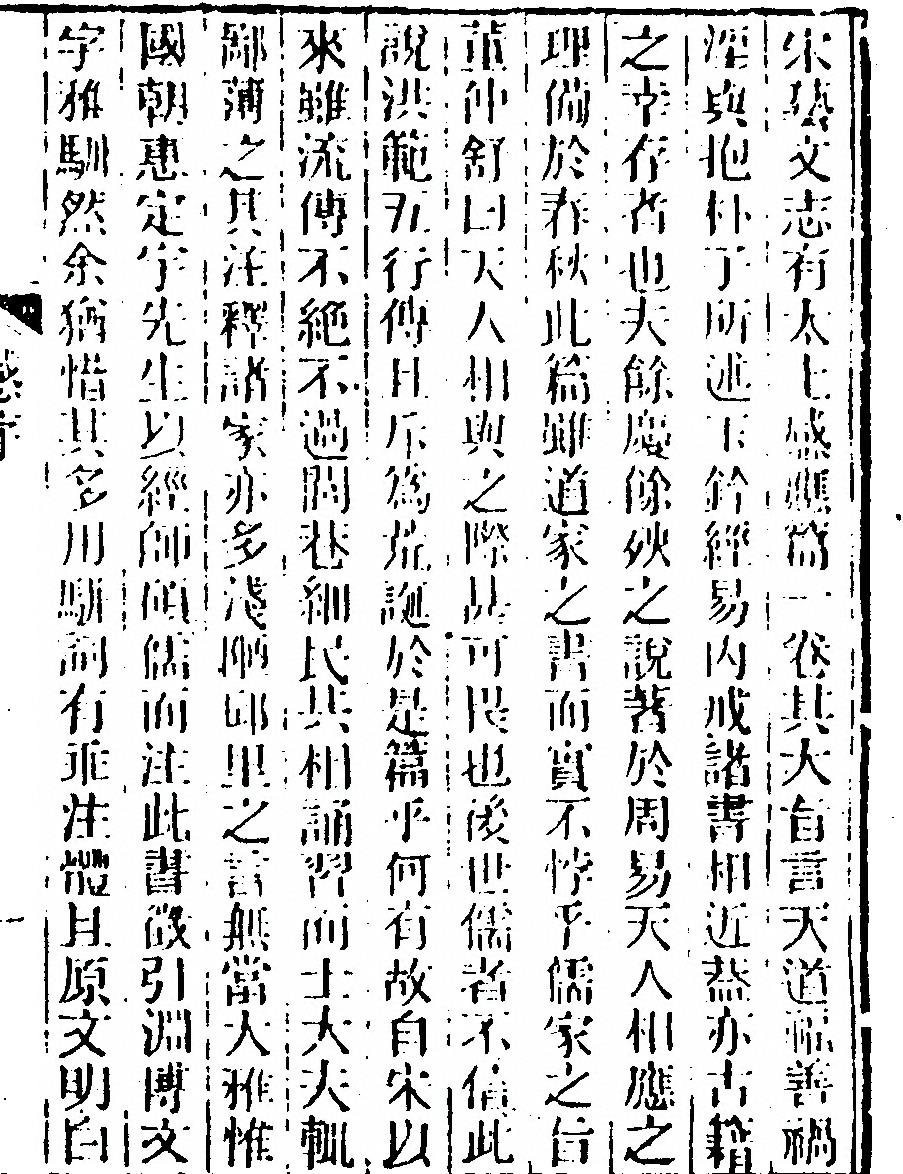 宋藝文志有太上感應篇一卷其大旨言天道福善禍
淫與抱朴子所述玉鈐經易內戒諸書相近葢亦古籍
之幸存者也夫餘慶餘殃之說著於周易天人相應之
理備於春秋此篇雖道家之書而實不悖乎儒家之旨
董仲舒曰天人相與之際甚可畏也後世儒者不信此
說洪範五行傳且斥為荒誕於是篇乎何有故自宋以
來雖流傳不絕不過閭巷細民共相誦習而士大夫輒
鄙薄之其注釋諸家亦多淺陋鄙里之言無當大雅惟
國朝惠定宇先生以經師碩儒而注此書徵引淵博文
字雅馴然余猶惜其多用駢詞有乖注體且原文明白